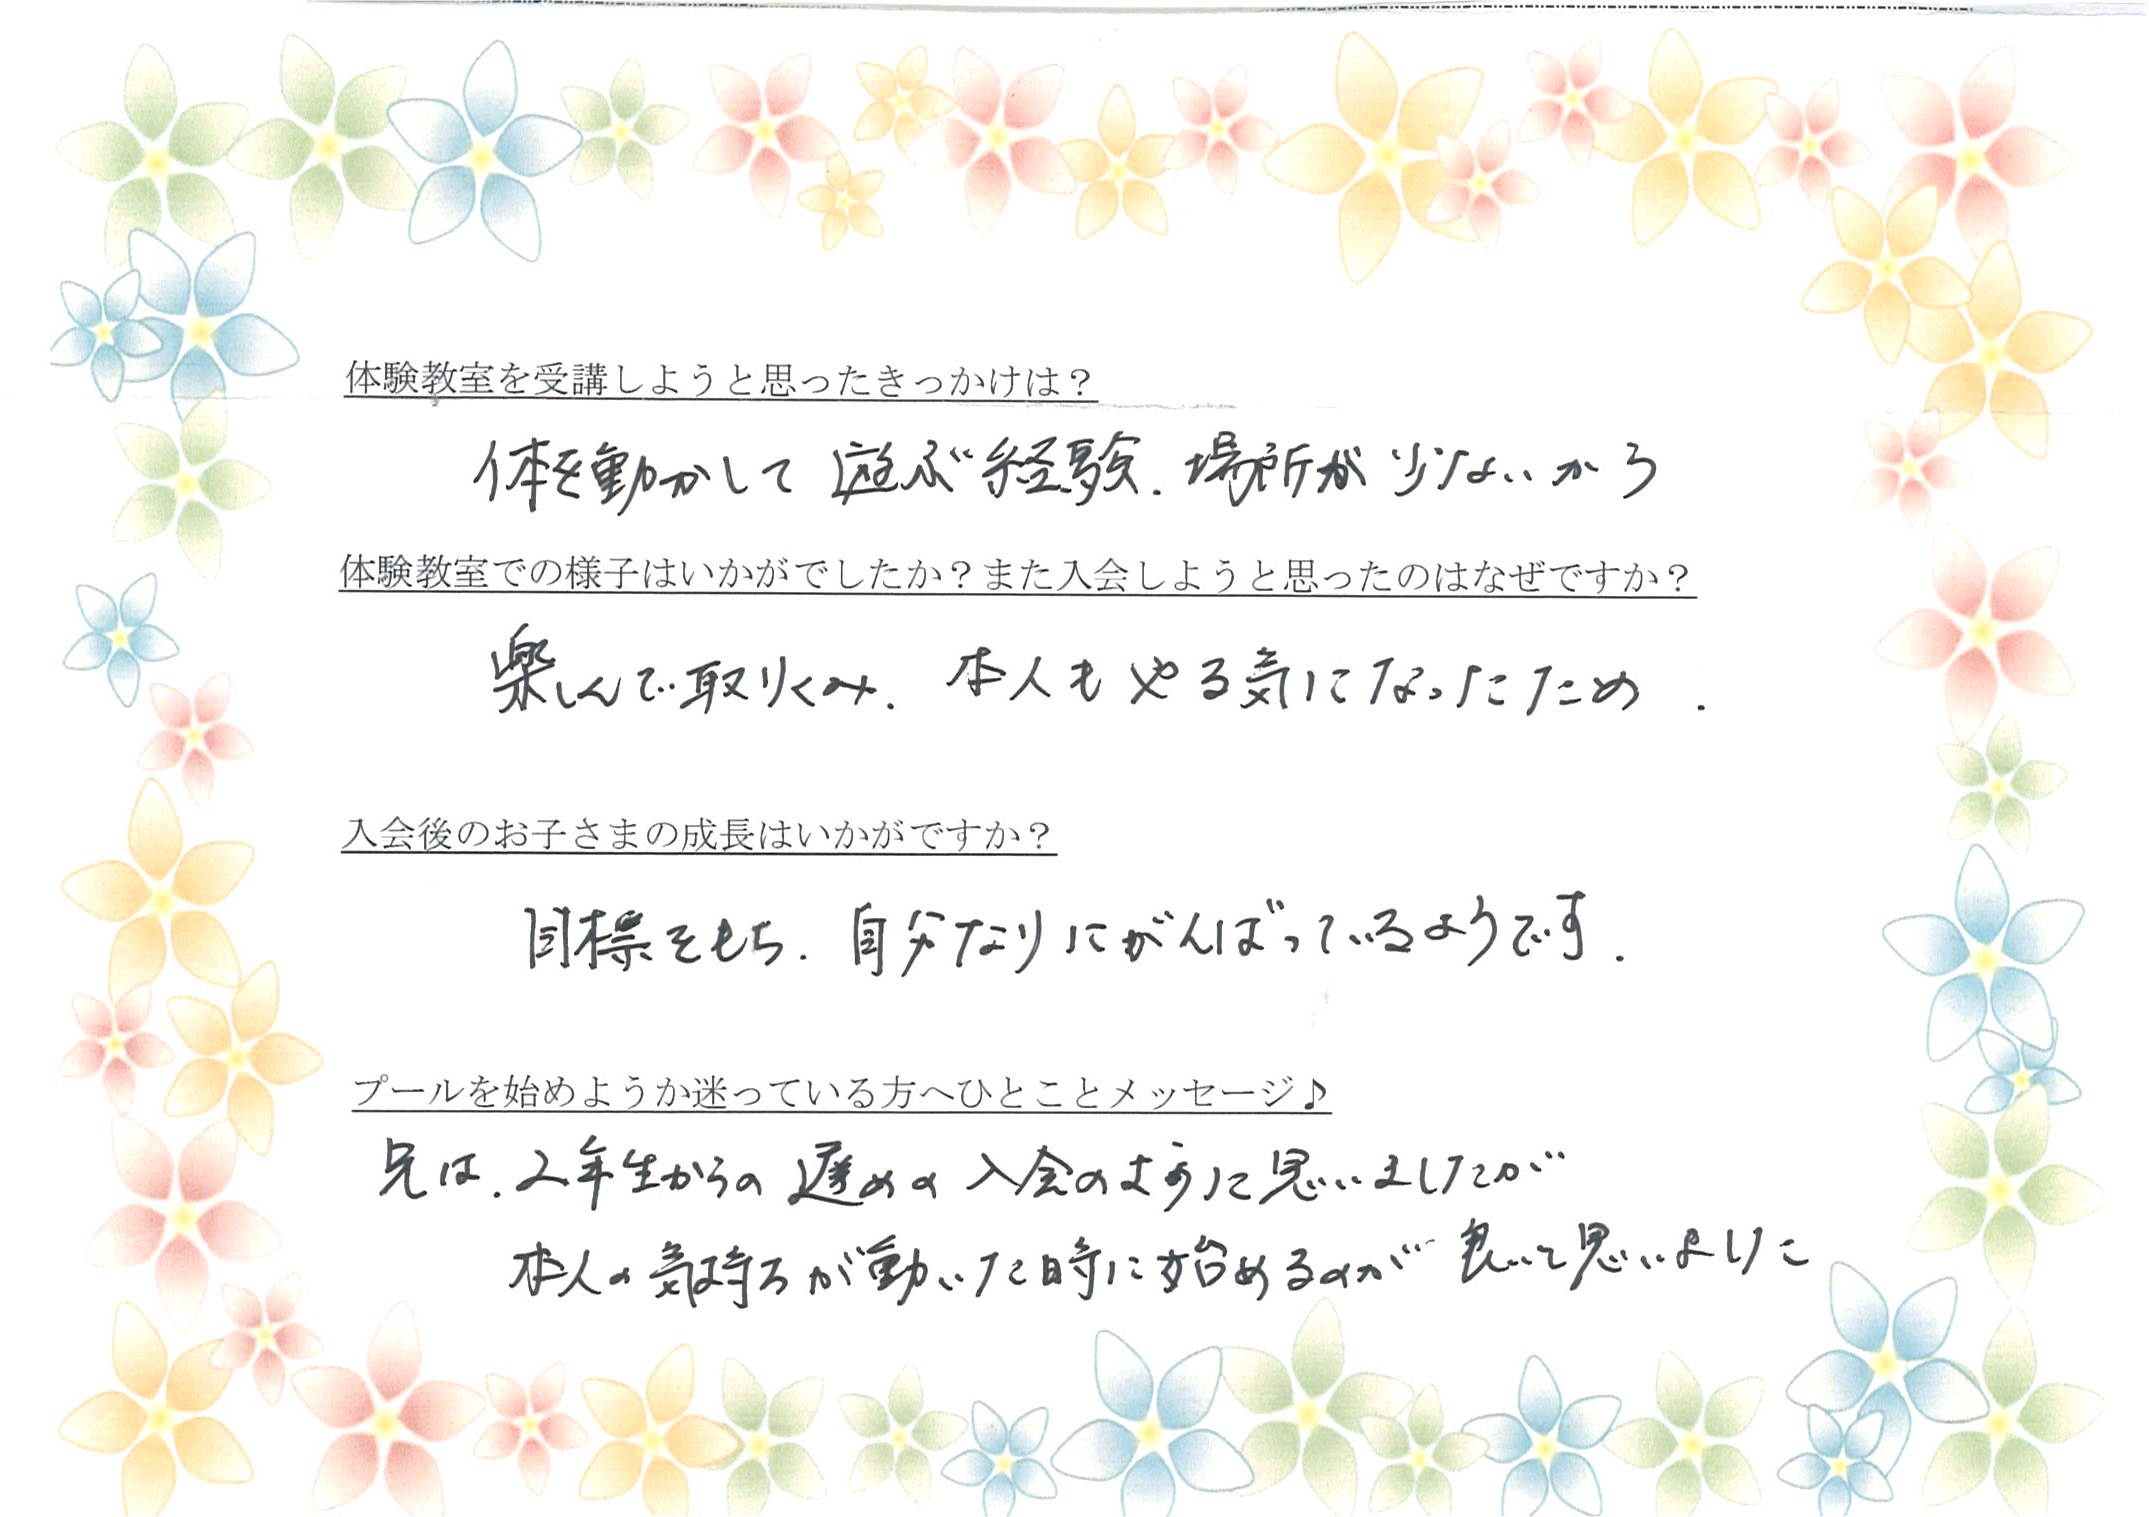 体験教室を受講しようと思ったきっかけは？
体を動かして遊ぶ経験、場所が少ないから
体験教室での様子はいかがでしたか？また入会しようと思ったのはなぜですか？
楽しんで取りくみ、本人もやる気になったため。
入会後のお子さまの成長はいかがですか？
目標をもち、自分なりにがんばっているようです。
プールを始めようか迷っている方へひとことメッセージ♪
兄は、2年生からの遅めの入会のように思いましたが
本人の気持ちが動いた時に始めるのが良いと思いました